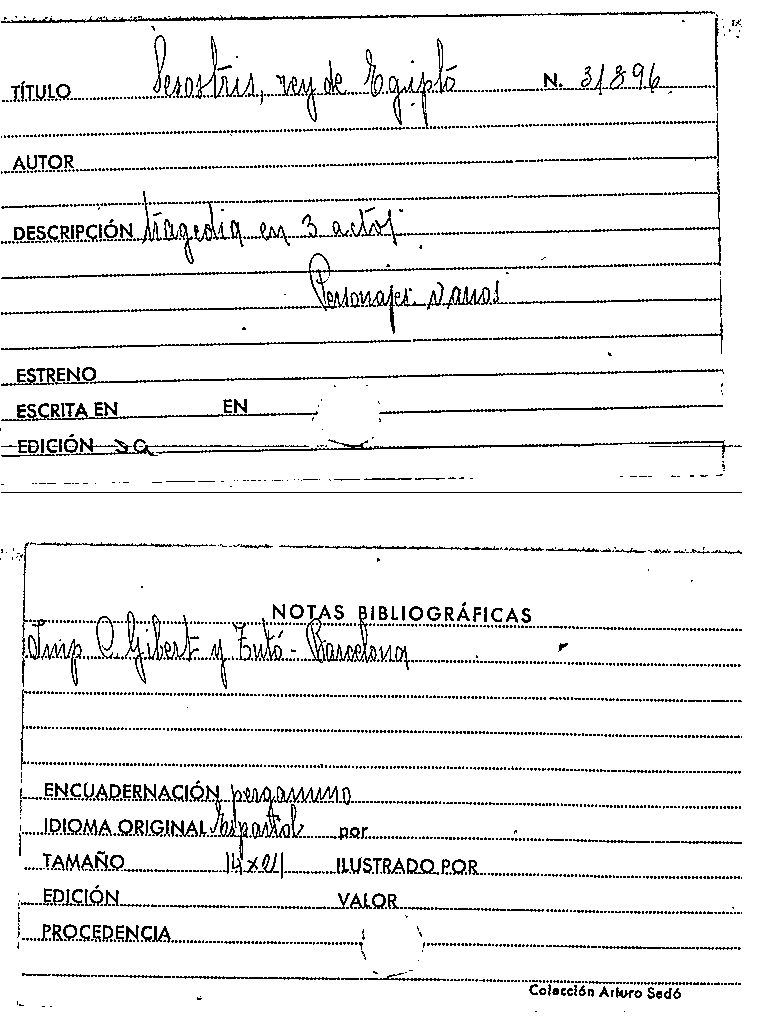 TÍTULO Sesostris, rey de Egipto N. 31896
AUTOR
DESCRIPCIÓN tragedia en 3 actos
Personajes varios
ESTRENO
ESCRITA EN EN
EDICIÓN sa
NOTAS BIBLIOGRÁFICAS
Imp C. Gibert y Tutó - Barcelona
ENCUADERNACIÓN pergamino
IDIOMA ORIGINAL Español por
TAMAÑO 14x21 ILUSTRADO POR
EDICIÓN VALOR
PROCEDENCIA
Colección Arturo Sedó